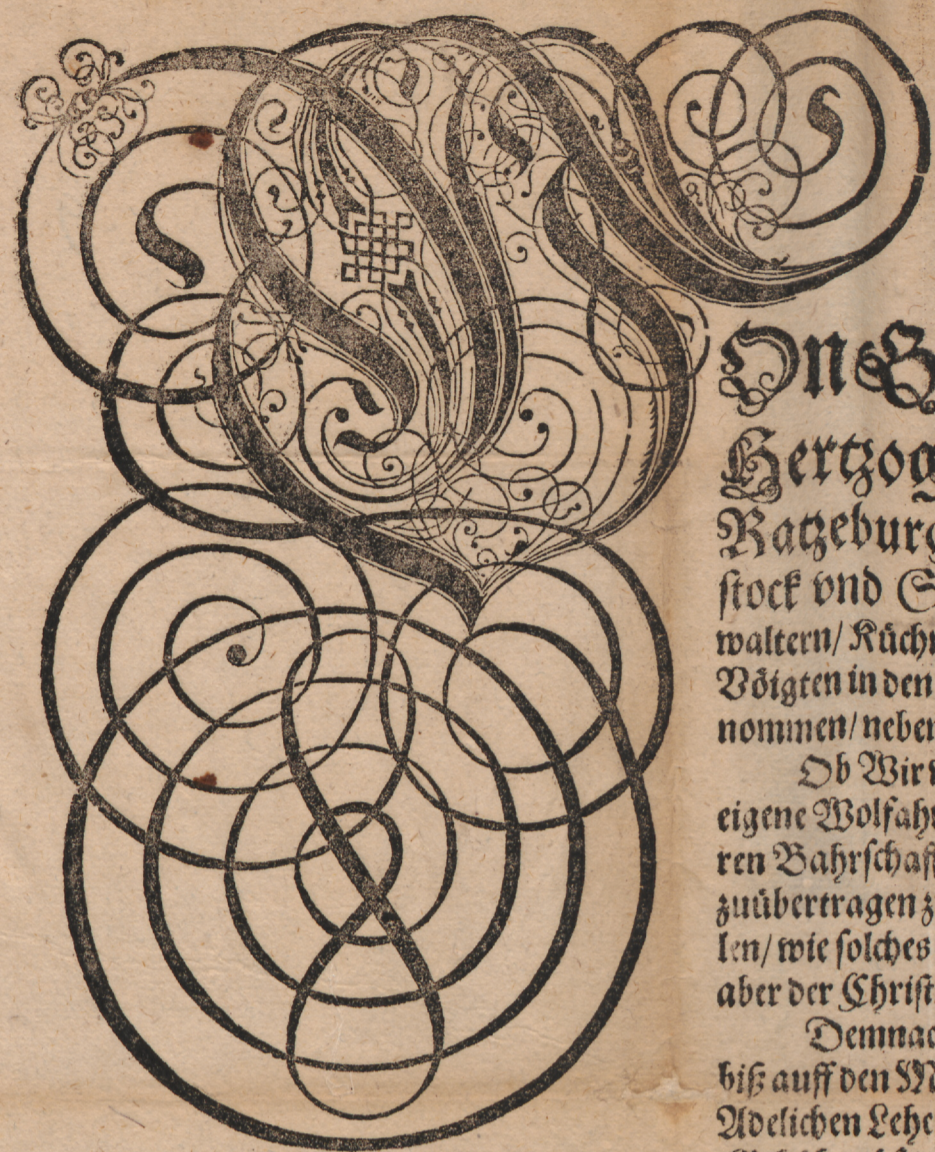 VOn G
Hertzog
Ratzeburg
stock vnd S
waltern/ Küchm
Vöigten in den
nommen/ neben
Ob Wir
eigene Wolfahr
ren Bahrschaff
zuübertragen z
len/ wie solches
aber der Christ
Demnac
biß auff den M
Adelichen Lehe